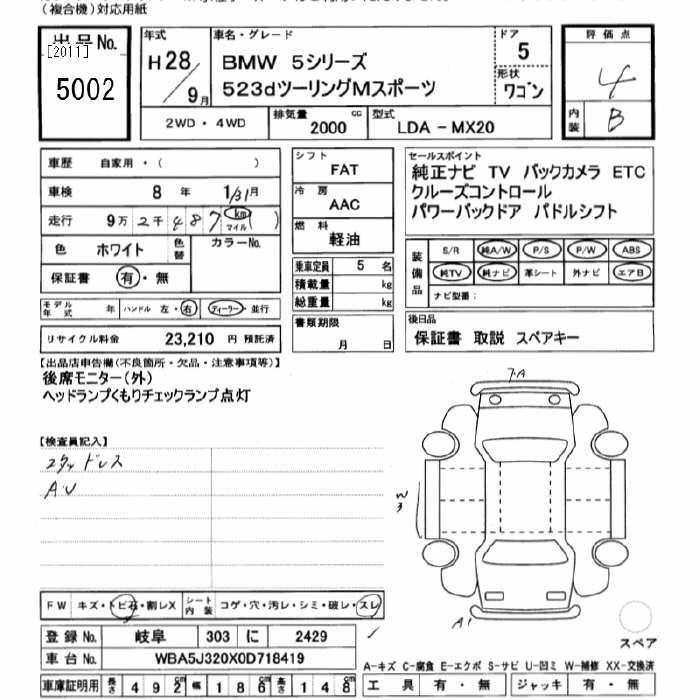 (複合機)対応用紙
出品No.
[2011]
5002
年式
H28/9月
車名・グレード
BMW 5シリーズ
523dツーリングMスポーツ
ドア
5
形状
ワゴン
評価点
4
内装
B
2WD・4WD
排気量
2000 cc
型式
LDA - MX20
車歴 自家用・( )
車検 8 年 1/31月
走行 9万 2千 4 8 7 km マイル ( )
色 ホワイト 色替 カラーNo.
保証書 有・無
シフト
FAT
冷房
AAC
燃料
軽油
乗車定員 5 名
積載量 kg
総重量 kg
セールスポイント
純正ナビ TV バックカメラ ETC
クルーズコントロール
パワーバックドア パドルシフト
装備品
S/R 純A/W P/S P/W ABS
純TV 純ナビ 革シート 外ナビ エアB
ナビ型番:
モデル年式 年 ハンドル 左・右 ディーラー・並行
リサイクル料金 23,210 円 預託済
書類期限
月 日
後日品
保証書 取説 スペアキー
【出品店申告欄(不良箇所・欠品・注意事項等)】
後席モニター(外)
ヘッドランプくもりチェックランプ点灯
【検査員記入】
スタッドレス
A.U
7-A
W3
A1
スペア
FW キズ・トビ石・割レX シート内装 コゲ・穴・汚レ・シミ・破レ・スレ
登録No. 岐阜 303 に 2429
車台No. WBA5J320X0D718419
A-キズ C-腐食 E-エクボ S-サビ U-凹ミ W-補修 XX-交換済
車庫証明用 長さ 492cm 幅 186cm 高さ 148cm
工具 有・無 ジャッキ 有・無